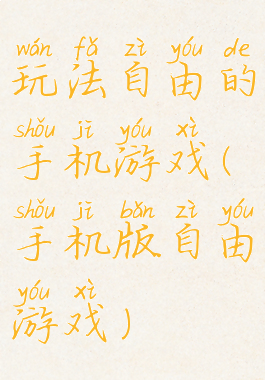 wán fǎ zì yóu de
玩法自由的
shǒu jī yóu xì
手机游戏(
shǒu jī bǎn zì yóu
手机版自由
yóu xì
游戏)